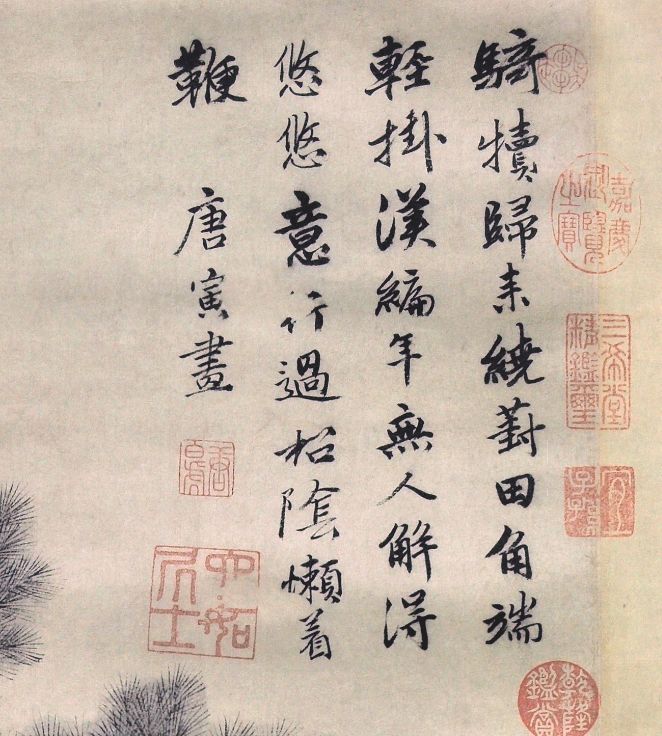 騎犢歸來繞葑田角端
輕掛漢編年無人解得
悠悠意行過松陰懶着
鞭 唐寅畫
唐白虎
六如居士
嘉慶御覽之寶
三希堂精鑑璽
宜子孫
乾隆鑑賞